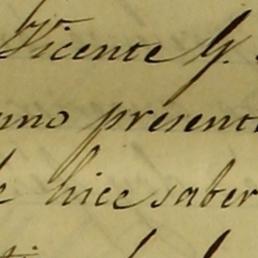 Vicente G.
mo present
hice saber